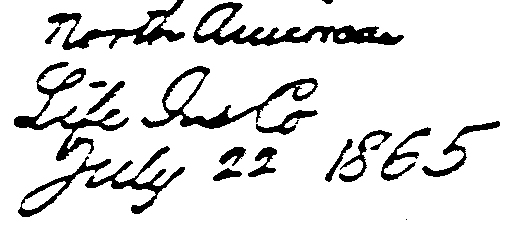 North American
Life Ins Co
July 22 1865